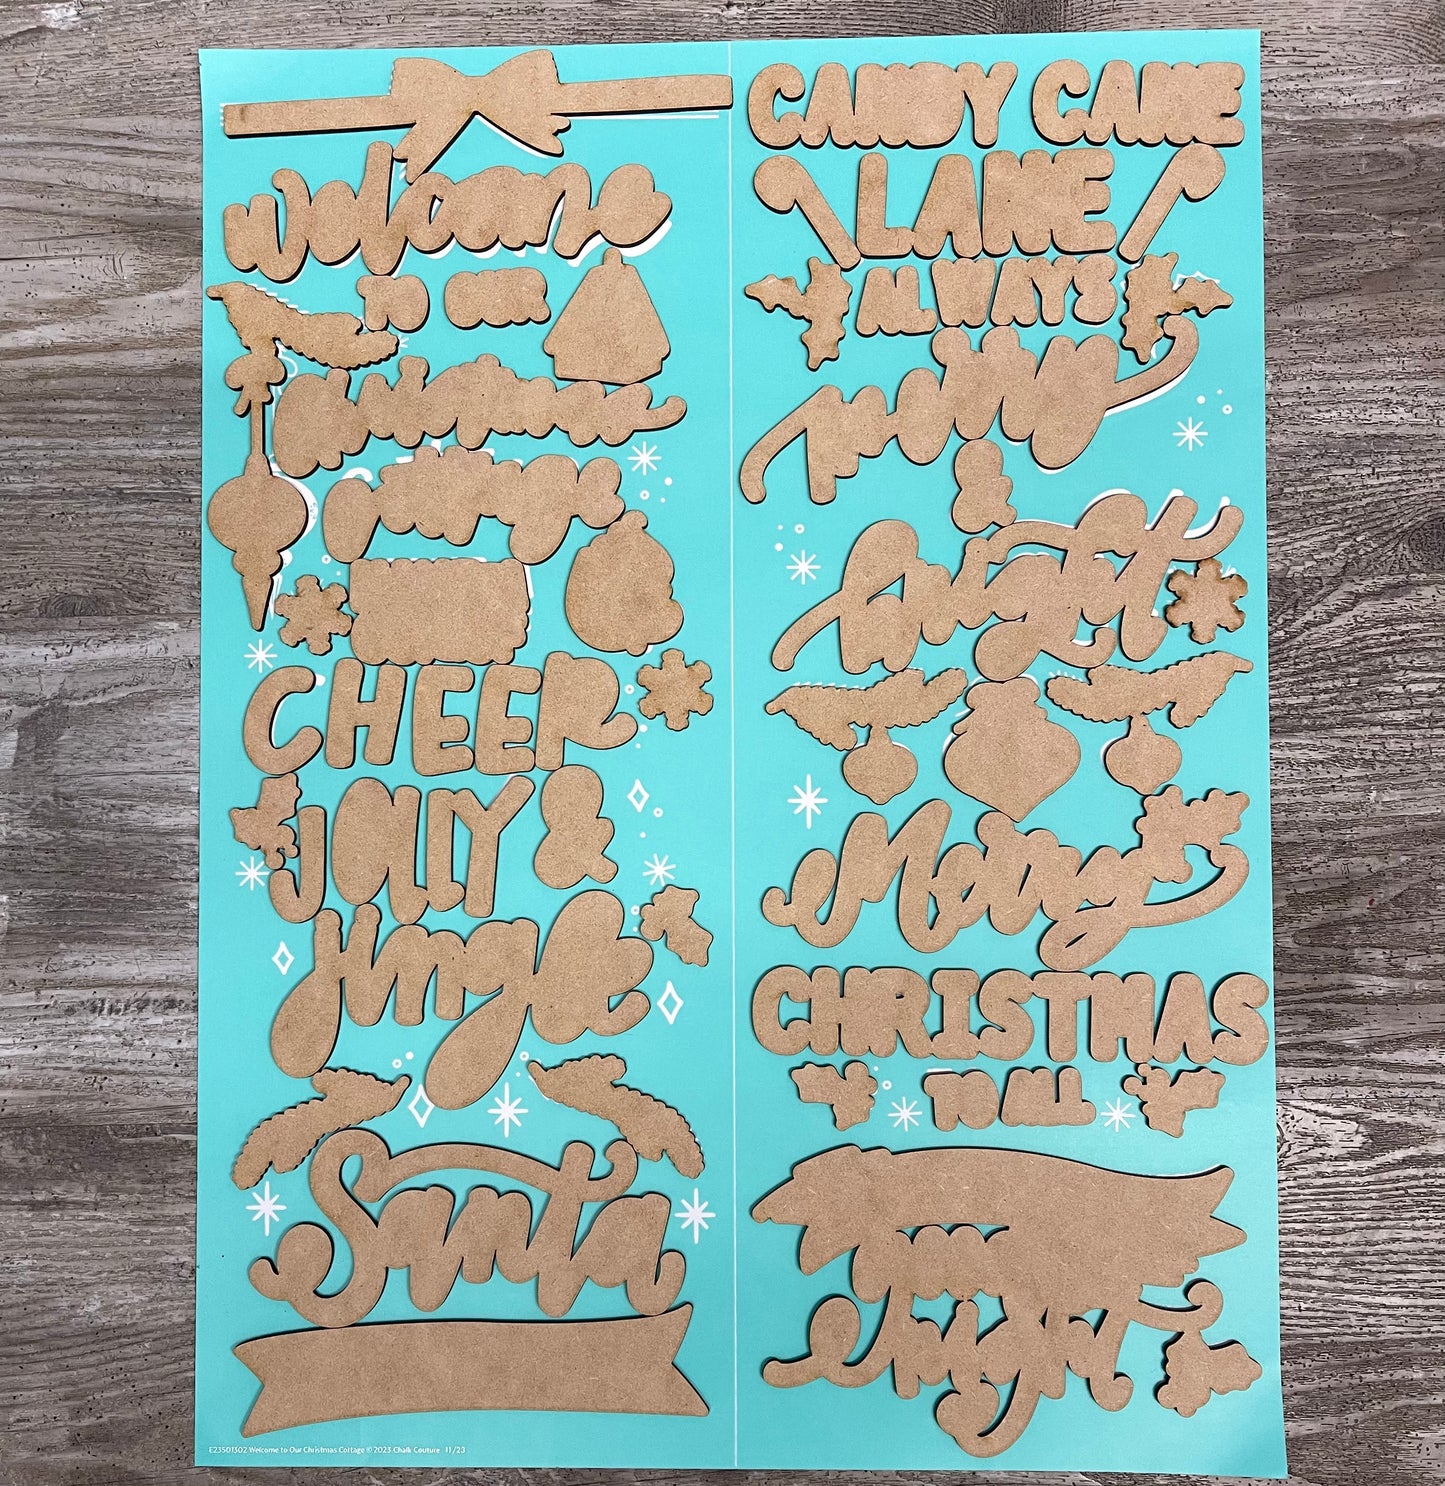 welcome
TO OUR
CHEER
JOLLY &
jingle
Santa
E23501302 Welcome to Our Christmas Cottage © 2023 Chalk Couture 11/23
CANDY CANE
LANE
ALWAYS
merry
&
bright
Merry
CHRISTMAS
TO ALL
night